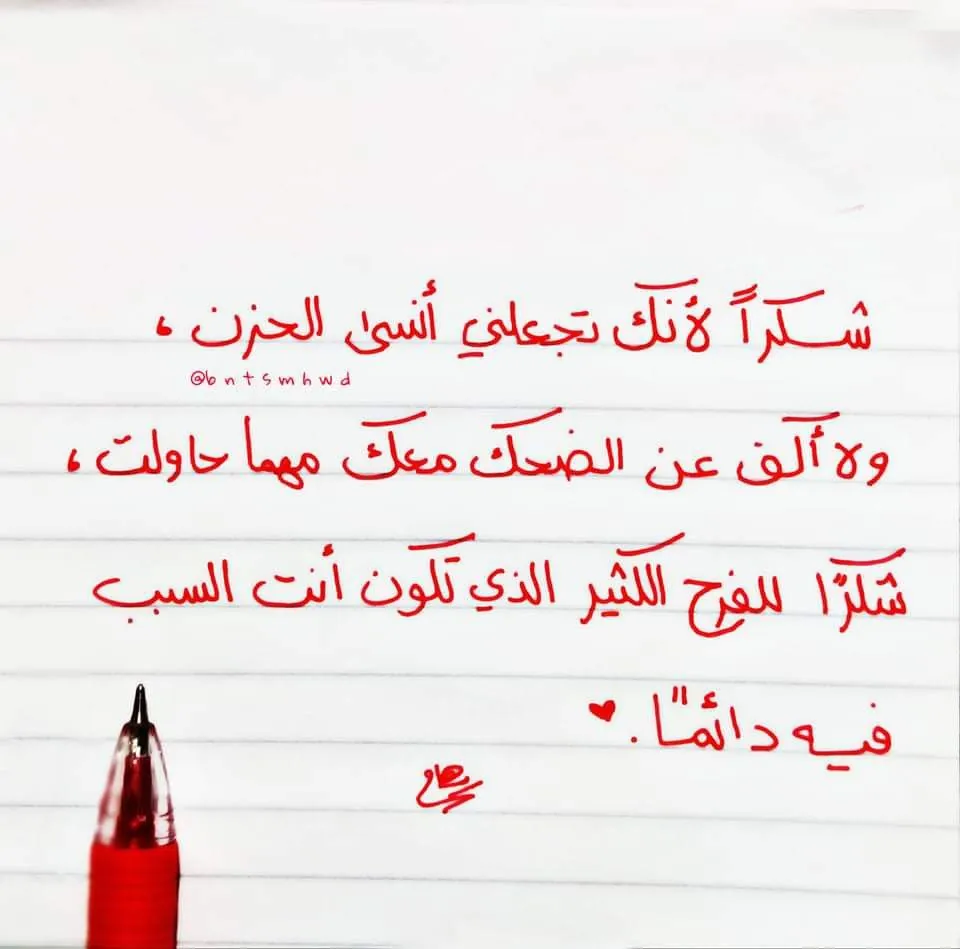 شكراً لأنك تجعلني أنسى الحزن ،
@bntsmhwd
ولا أكف عن الضحك معك مهما حاولت ،
شكرًا للفرح الكثير الذي تكون أنت السبب
فيه دائمًا . ♥